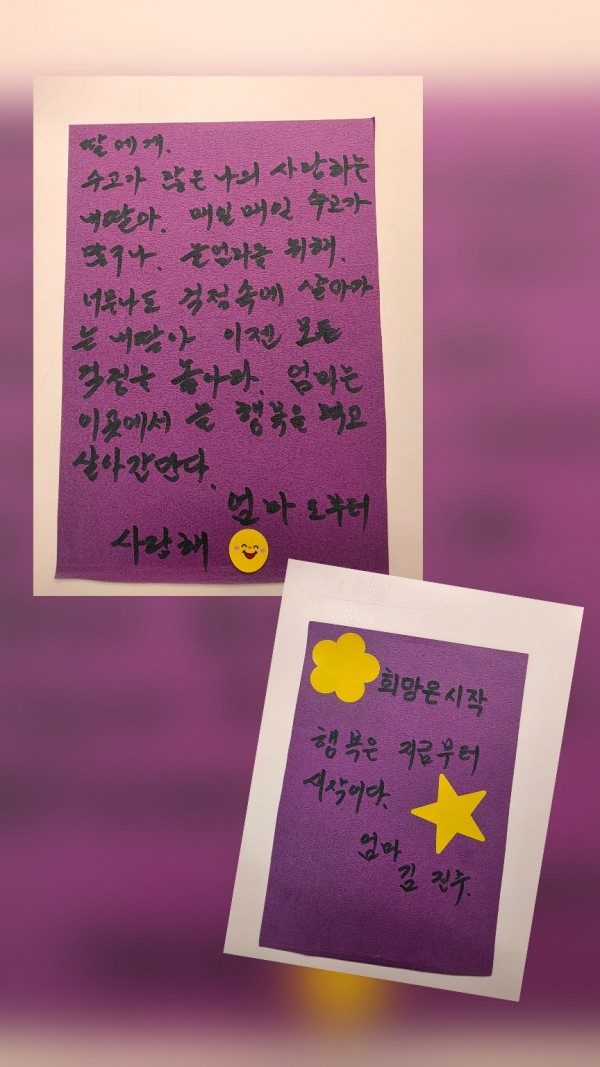 딸에게.
수고가 많은 나의 사랑하는
내딸아. 매일매일 수고가
많구나. 늘엄마를 위해.
너무나도 걱정속에 살아가
는 내딸아 이젠 모든
걱정은 놓아라. 엄마는
이곳에서 늘 행복을 먹고
살아간단다.
엄마로부터
사랑해
희망은시작
행복은 지금부터
시작이다.
엄마
김 진수.